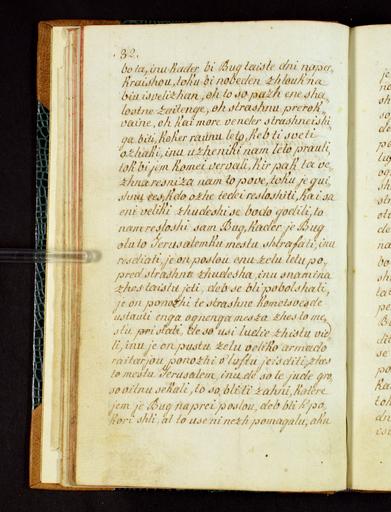 .32.
bo ta, inu kader bi Bug taiste dni naper
kraishou, toku bi nobeden zhlouk na
biu isvelizhan, oh to so pazh ene sha
lostne zaitenge, oh strashnu prerok
vaine, oh kai more veneker strashneishi
ga biti, koker raunu leto, keb ti sveti
ozhaki, inu uzheniki nam leto prauli,
tok bi jem komei vervali, kir pak ta ve
zhna resniza nam to pove, toku je gui
shnu res, kdo ozhe tedei resloshiti, kai sa
eni veliki zhudeshi se bodo godili, to
nam resloshi sam Bug, kader je Bug
otu to Jerusalemku mestu shtrafati, inu
resdiati, je on poslou enu zelu letu po
pred strashne zhudesha, inu snamina
zhes taistu jeti, deb se bli pobolshali,
je on ponozhi te strashne kometo
ustauli enga ognenga mesza zhes to me
stu pri stati, de so usi ludie zhistu vid
li, inu je on pustu zelu veliko armado
raitarjou ponozhi v' lufftu jesditi, zhes
to mestu Jerusalem, inu de so te jude gro
so vilnu sekali, to so bli ti zahni, katere
jem je Bug naprei poslou, deb bli k' po
kori shli, al to use ni nezh pomagalu, ahu